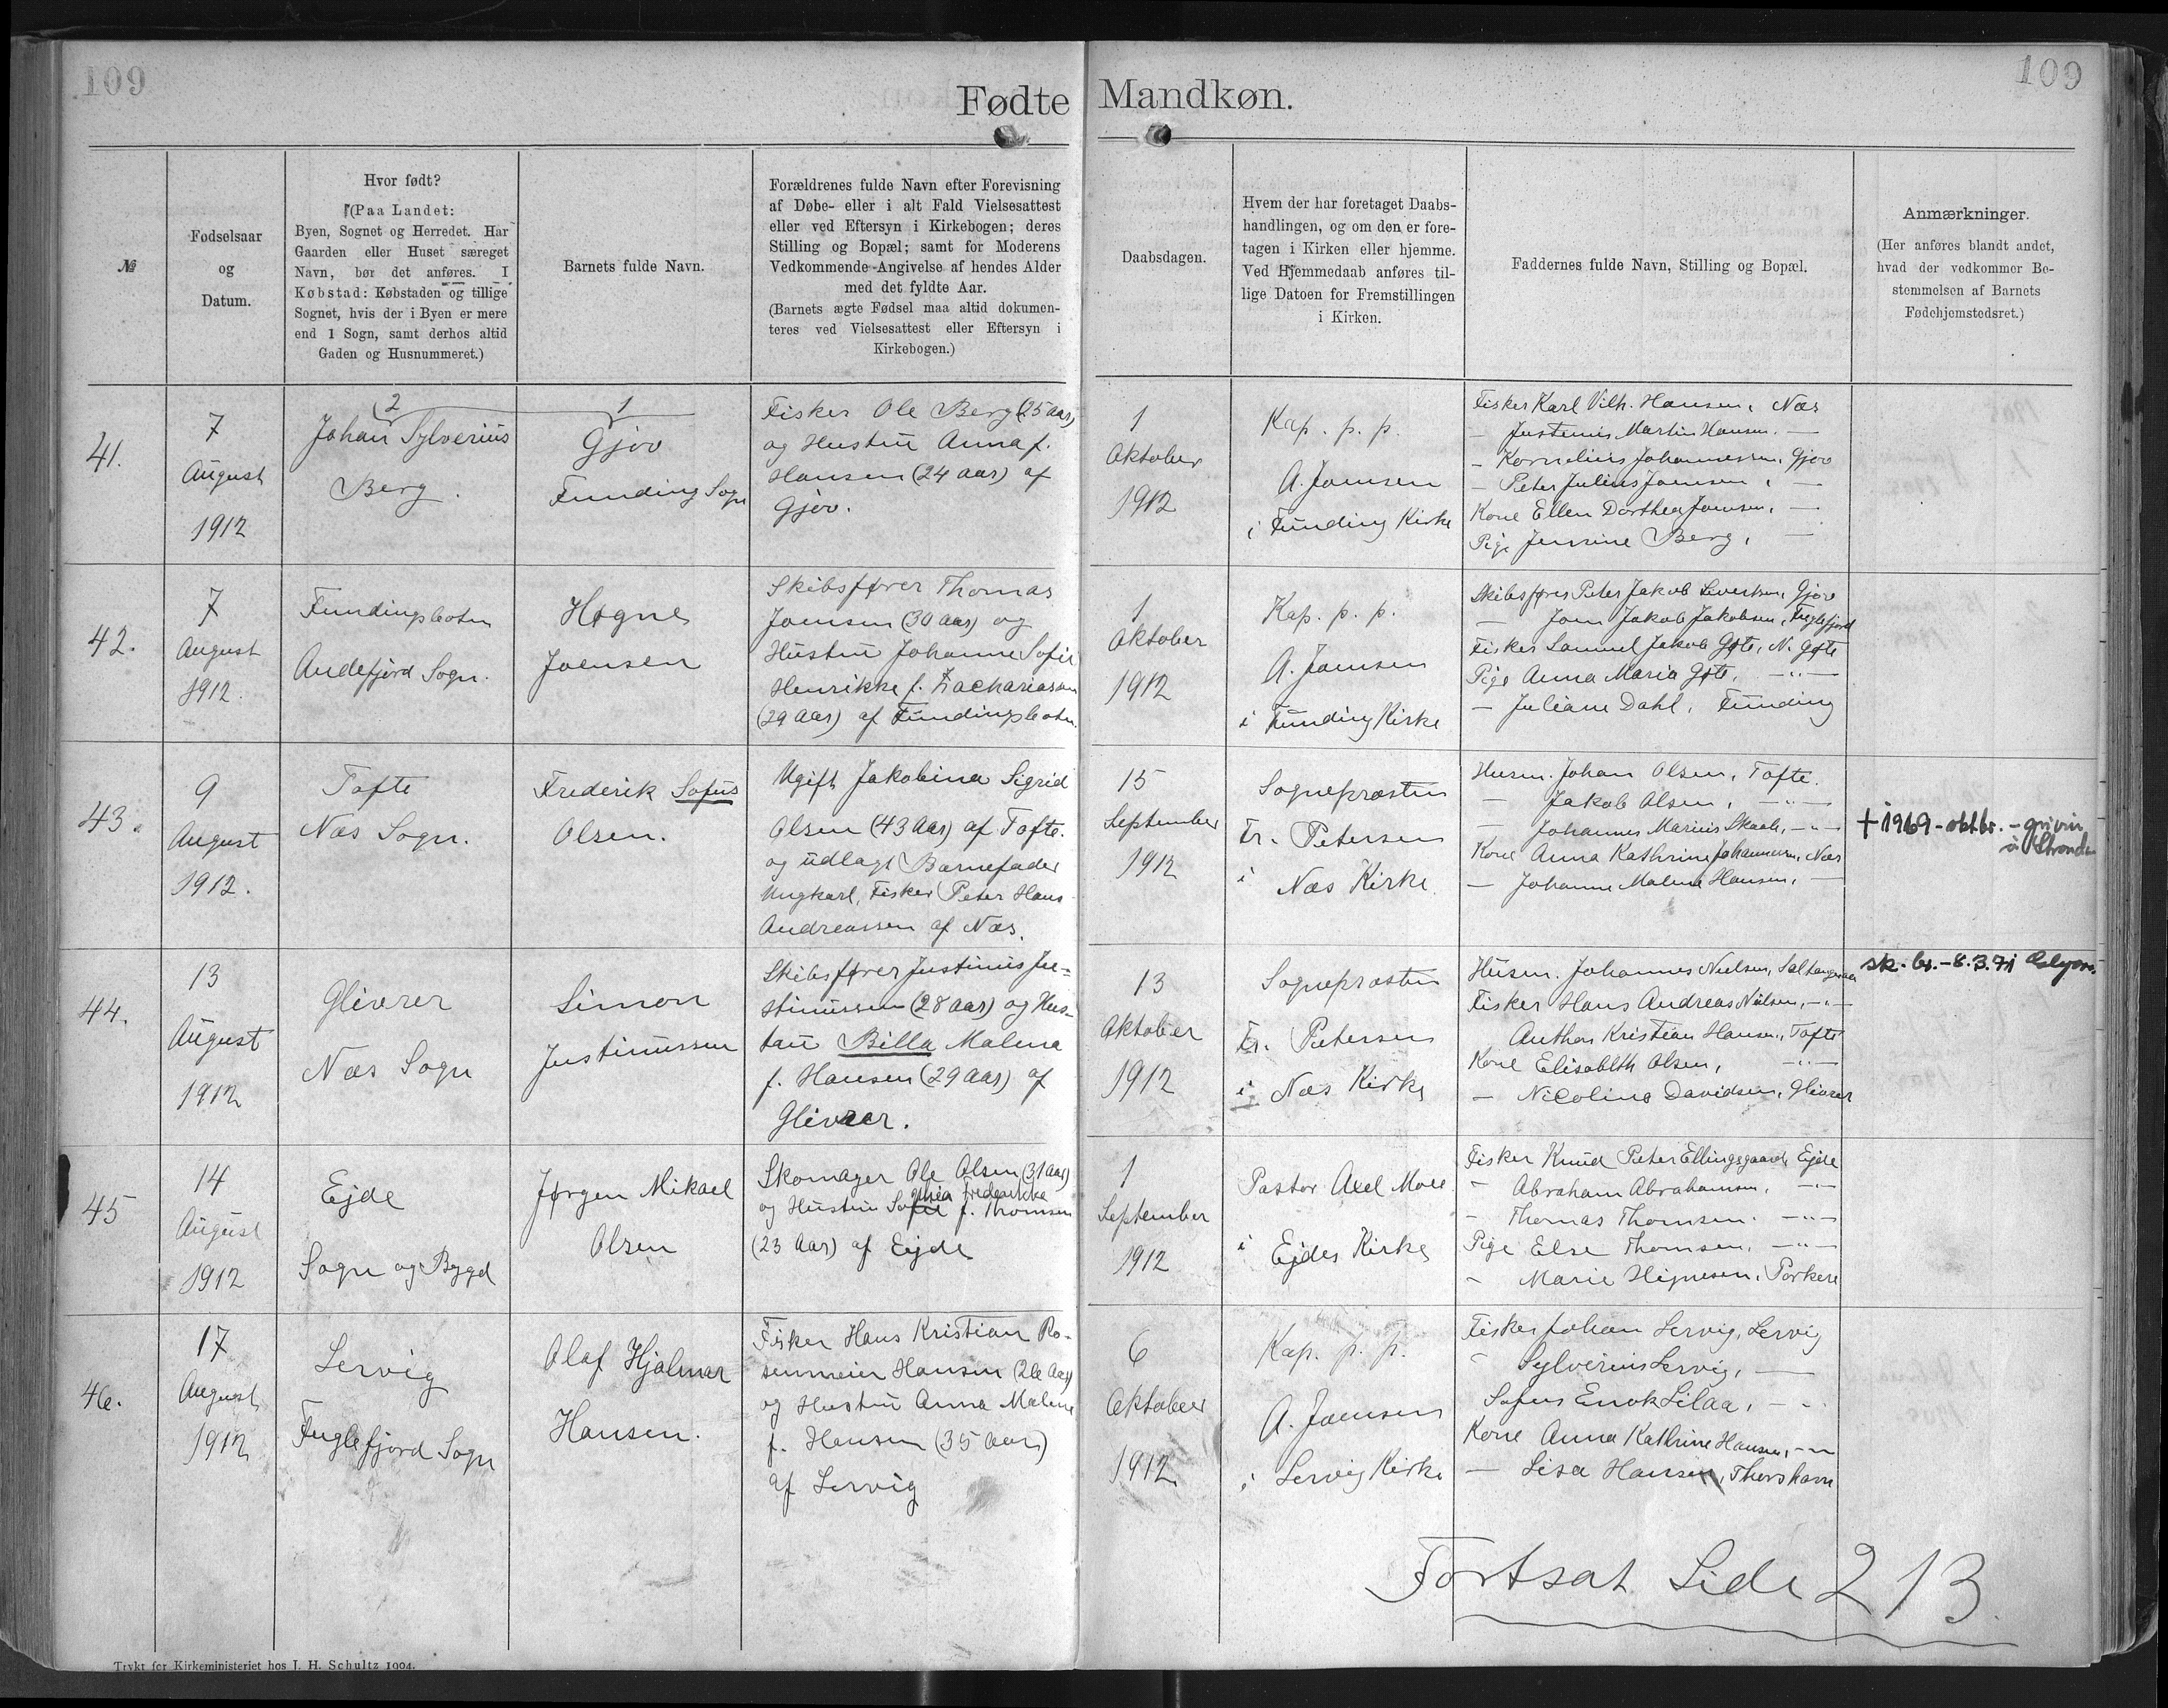 109
109
Fødte Mandkøn.
№
Fødselsaar
og
Datum.
Hvor født?
(Paa Landet:
Byen, Sognet og Herredet. Har
Gaarden eller Huset særeget
Navn, bør det anføres. I
Købstad: Købstaden og tillige
Sognet, hvis der i Byen er mere
end 1 Sogn, samt derhos altid
Gaden og Husnummeret.)
Barnets fulde Navn.
Forældrenes fulde Navn efter Forevisning
af Døbe- eller i alt Fald Vielsesattest
eller ved Eftersyn i Kirkebogen; deres
Stilling og Bopæl; samt for Moderens
Vedkommende Angivelse af hendes Alder
med det fyldte Aar.
(Barnets ægte Fødsel maa altid dokumen-
teres ved Vielsesattest eller Eftersyn i
Kirkebogen.)
Daabsdagen.
Hvem der har foretaget Daabs-
handlingen, og om den er fore-
tagen i Kirken eller hjemme.
Ved Hjemmedaab anføres til-
lige Datoen for Fremstillingen
i Kirken.
Faddernes fulde Navn, Stilling og Bopæl.
Anmærkninger.
(Her anføres blandt andet,
hvad der vedkommer Be-
stemmelsen af Barnets
Fødehjemstedsret.)
41.
7
August
1912
2
Johan Sylverius
Berg.
1
Gjov
Funding Sogn
Fisker Ole Berg (25 Aar)
og Hustru Anna f.
Hansen (24 Aar) af
Gjov.
1
Oktober
1912
Kap. p. p.
A. Joensen
i Funding Kirke
Fisker Karl Vilh. Hansen, Næs
— Justinus Martin Hansen. —
— Kornelius Johannessen, Gjov
— Peter Julius Joensen, —
Kone Ellen Dorthea Joensen, —
Pige Jensine Berg, —
42.
7
August
1912.
Fundingsbotn
Andefjord Sogn.
Høgne
Joensen
Skibsfører Thomas
Joensen (30 Aar) og
Hustru Johanne Sofie
Henrikke f. Zachariasen
(29 Aar) af Fundingsbotn.
1
Oktober
1912
Kap. p. p.
A. Joensen
i Funding Kirke
Skibsfører Peter Jakob Sivertsen, Gjov
— Joen Jakob Jakobsen, Fuglefjord
Fisker Samuel Jakob Gøte, N. Gøte
Pige Anna Maria Gøte, —"—
— Juliane Dahl, Funding
43.
9
August
1912.
Tofte
Næs Sogn.
Frederik Sofus
Olsen.
Ugift Jakobina Sigrid
Olsen (43 Aar) af Tofte.
og udlagt Barnefader
Ungkarl, Fisker Peter Hans
Andreassen af Næs.
15
September
1912
Sognepræsten
Fr. Petersen
i Næs Kirke.
Husm. Johan Olsen, Tofte.
— Jakob Olsen, —"—
— Johannes Marius Skaale, —"—
Kone Anna Kathrine Johannessen, Næs
— Johanne Malene Hansen, —
+ 1969 - oktbr. - grivin
á Strond
44.
13
August
1912
Glivrer
Næs Sogn
Simon
Justinussen
Skibsfører Justinus Ju=
stinussen (28 Aar) og Hus-
tru Billa Malena
f. Hansen (29 Aar) af
Glivrer.
13
Oktober
1912
Sognepræsten
Fr. Petersen
i Næs Kirke
Husm. Johannes Nielsen, Saltangeraa
Fisker Hans Andreas Nielsen, —"—
Anthon Kristian Hansen, Tofte
Kone Elisabeth Olsen, —"—
— Nicolina Davidsen, Glivrer
sk. br. - 8.3.71
45
14
August
1912
Ejde
Sogn og Bygd
Jørgen Mikael
Olsen
Skomager Ole Olsen (31 Aar)
phia Frederikke
og Hustru Sofie f. Thomsen
(23 Aar) af Ejde
1
September
1912
Pastor Axel Moe
i Ejdes Kirke
Fisker Knud Peter Ellingsgaard, Ejde
— Abraham Abrahamsen, —"—
— Thomas Thomsen. —"—
Pige Else Thomsen, —"—
— Marie Hignesen, Porkere
46.
17
August
1912
Lervig
Fuglefjord Sogn
Olaf Hjalmar
Hansen.
Fisker Hans Kristian Ro-
senmeier Hansen (26 Aar)
og Hustru Anna Malene
f. Hansen (35 Aar)
af Lervig
6
Oktober
1912
Kap. p. p.
A. Joensen
i Lervig Kirke
Fisker Johan Lervig, Lervig
" Sylverius Lervig, —
Sofus Enok Lilaa, — "
Kone Anna Kathrine Hansen, —"—
— Lisa Hansen, Thorshavn
Fortsat Side 213.
Trykt for Kirkeministeriet hos J. H. Schultz 1904.